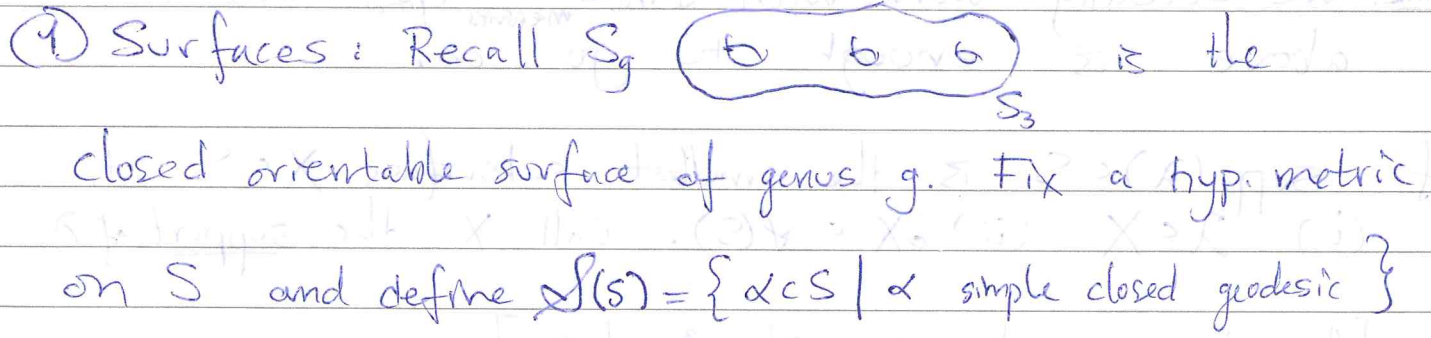 ① Surfaces: Recall S_g is the
S_3
closed orientable surface of genus g. Fix a hyp. metric
on S and define 𝒮(S) = { α ⊂ S | α simple closed geodesic }